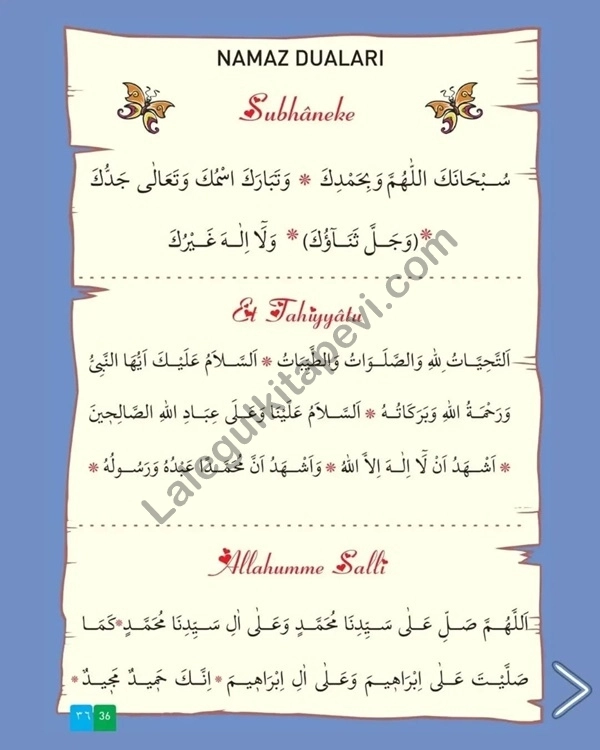 NAMAZ DUALARI
Subhâneke
سُبْحَانَكَ اللّٰهُمَّ وَبِحَمْدِكَ * وَتَبَارَكَ اسْمُكَ وَتَعَالٰى جَدُّكَ
*(وَجَلَّ ثَنَٓاؤُكَ)* وَلَٓا اِلٰهَ غَيْرُكَ
Et Tahiyyâtu
اَلتَّحِيَّاتُ لِلّٰهِ وَالصَّلَوَاتُ وَالطَّيِّبَاتُ * اَلسَّلَامُ عَلَيْكَ اَيُّهَا النَّبِيُّ
وَرَحْمَةُ اللّٰهِ وَبَرَكَاتُهُ * اَلسَّلَامُ عَلَيْنَا وَعَلٰى عِبَادِ اللّٰهِ الصَّالِحٖينَ
* اَشْهَدُ اَنْ لَٓا اِلٰهَ اِلَّا اللّٰهُ * وَاَشْهَدُ اَنَّ مُحَمَّدًا عَبْدُهُ وَرَسُولُهُ *
Allahumme Salli
اَللّٰهُمَّ صَلِّ عَلٰى سَيِّدِنَا مُحَمَّدٍ وَعَلٰى اٰلِ سَيِّدِنَا مُحَمَّدٍ * كَمَا
صَلَّيْتَ عَلٰى اِبْرَاهٖيمَ وَعَلٰى اٰلِ اِبْرَاهٖيمَ * اِنَّكَ حَمٖيدٌ مَجٖيدٌ *
٣٦ 36
Lalegulkitapevi.com